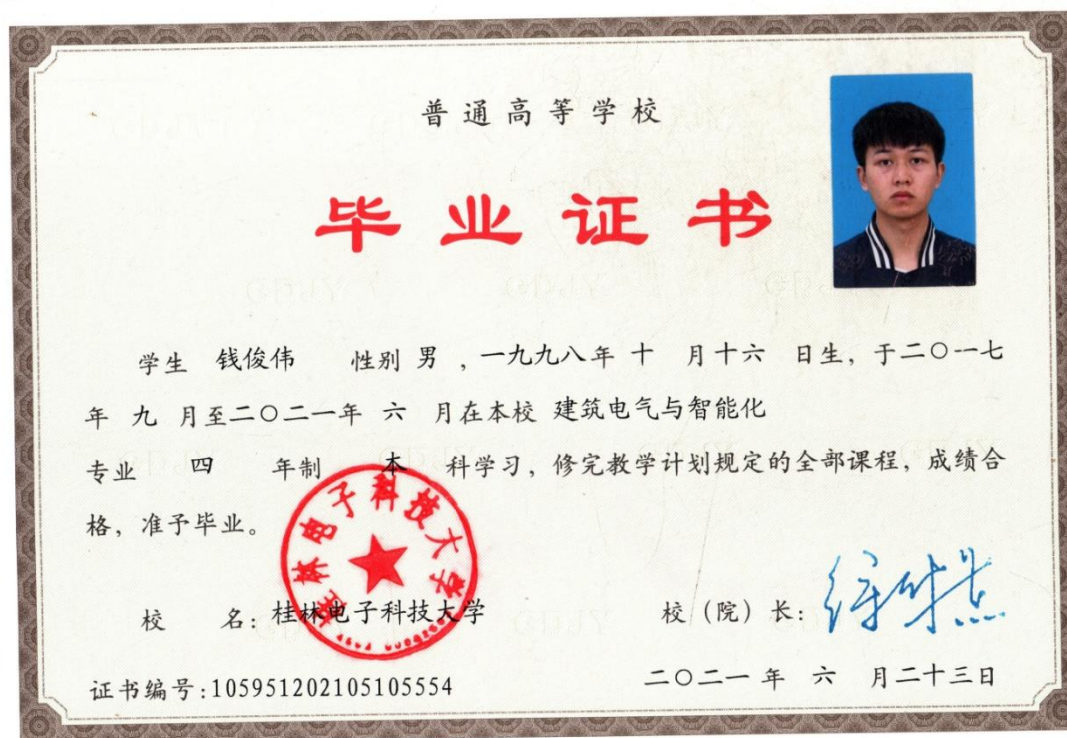 普通高等学校
毕业证书
学生 钱俊伟 性别 男 ，一九九八年 十 月十六 日生，于二〇一七
年 九 月至二〇二一年 六 月在本校 建筑电气与智能化
专业 四 年制 本 科学习，修完教学计划规定的全部课程，成绩合
格，准予毕业。
桂林电子科技大学
校 名：桂林电子科技大学 校（院）长：
证书编号：105951202105105554 二〇二一 年 六 月二十三日